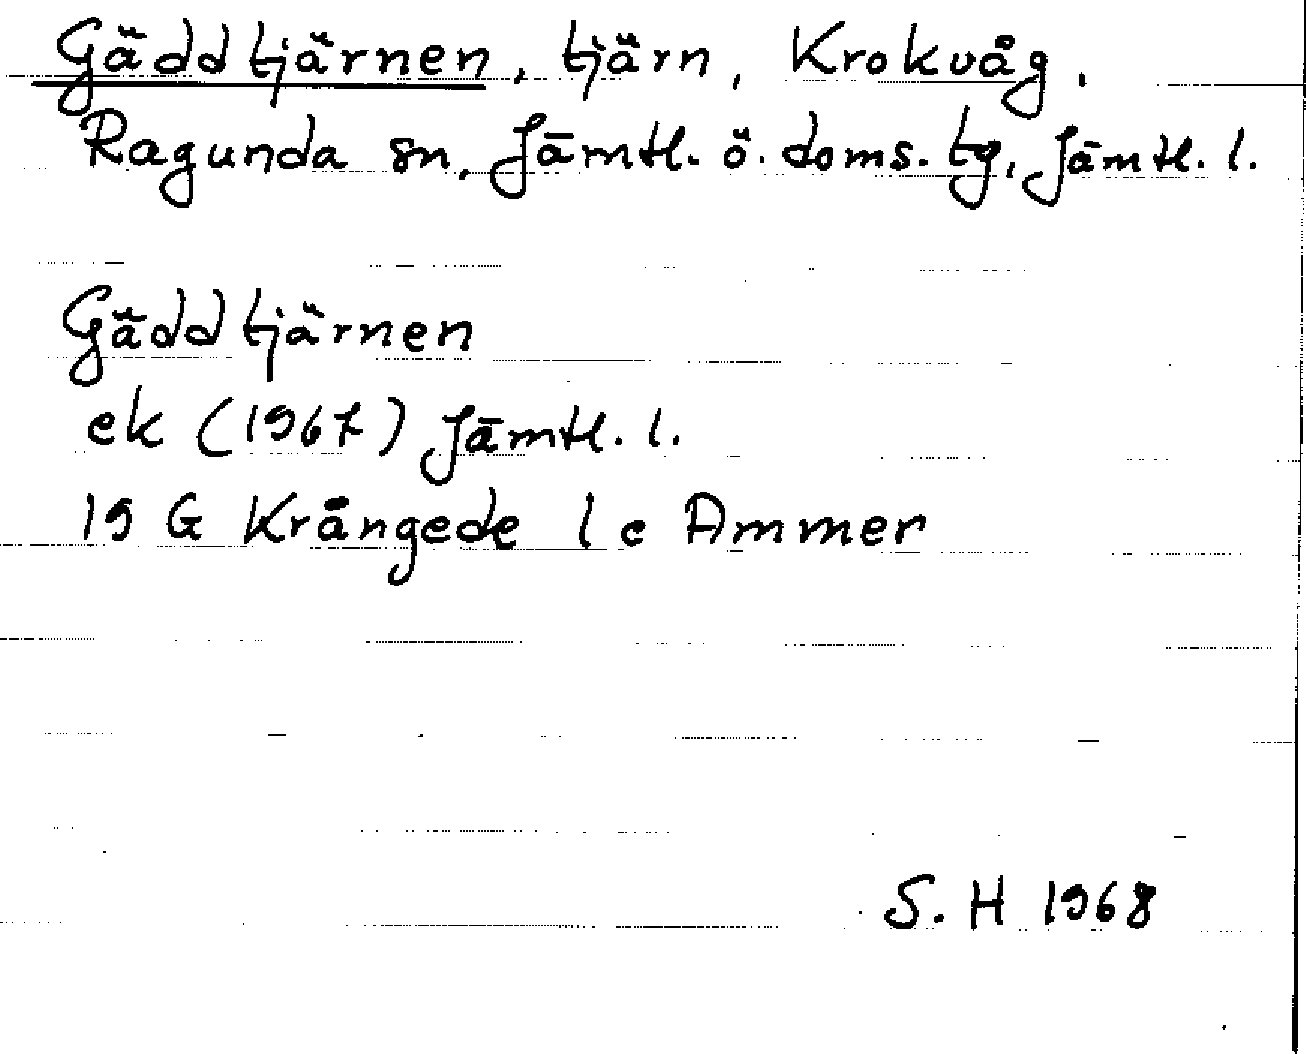 Gäddtjärnen, tjärn, Krokvåg.
Ragunda sn, Jämtl. ö. doms. tg, Jämtl. l.
Gäddtjärnen
ek (1967) Jämtl. l.
19 G Krångede 1 c Ammer
S. H 1968